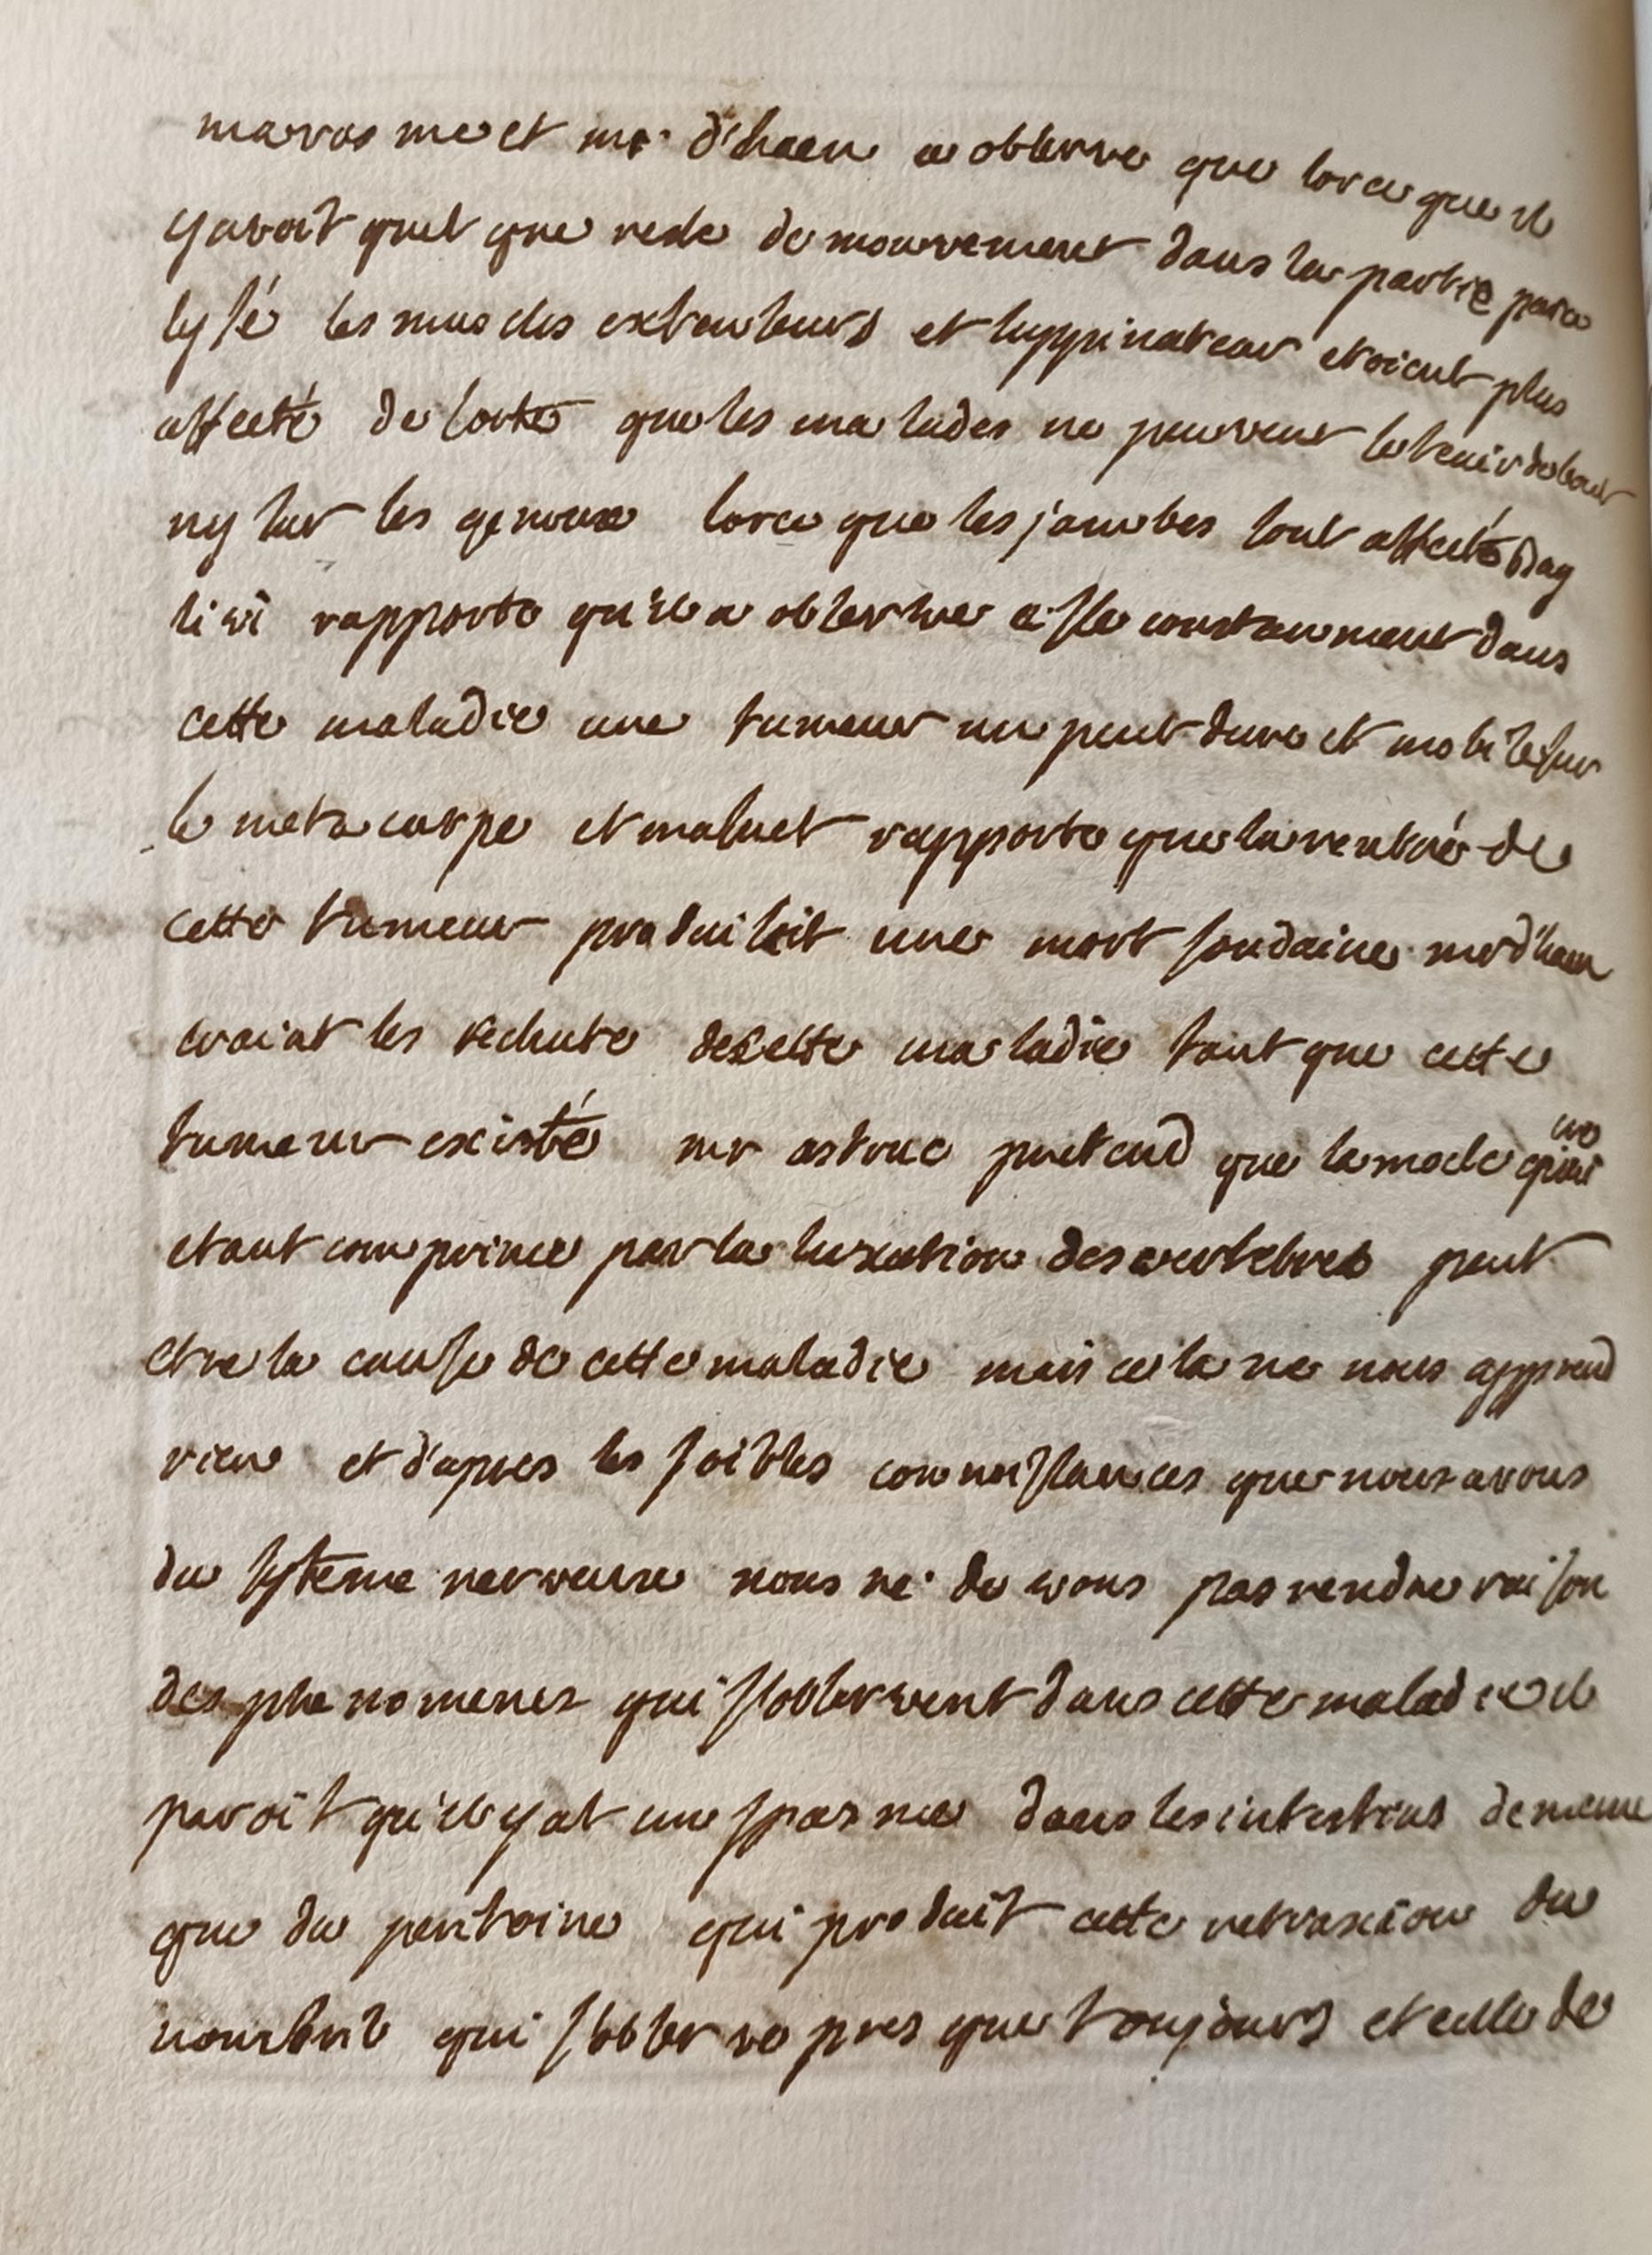 maras me et mr. d'haen a observe que lorce que il
y avoit quel que reste de mouvement dans la partie para
lysé les muscles extenseurs et suppinateur etoient plus
affecté de sorte que les ma lades ne peuvent se tenir debout
ny sur les genoux lorce que les jambes sont affecté bag
li wi rapporte qu'il a observue asse constamment dans
cette maladie une tumeur un peut dure et mobile sur
le meta carpe et maluet rapporte que la rentré de
cette tumeur produisoit une mort soudaine mr d'haen
craiat les rechute de cette ma ladie tant que cette
tumeur existé mr astruc pretend que la moele epinie
etant comprimee par la luxation des vertebres peut
etre la cause de cette maladie mais cela ne nous apprend
rien et d'apres les foibles connoissances que nous avons
du systeme nerveuse nous ne de vons pas rendre raison
des phe nomenes qui sobservent dans cette maladie il
paroit qu'il y at une spasme dans les intestins de meme
que du peritoine qui produit cette retraxion du
nombril qui sobser ve pres que toujours et celle de